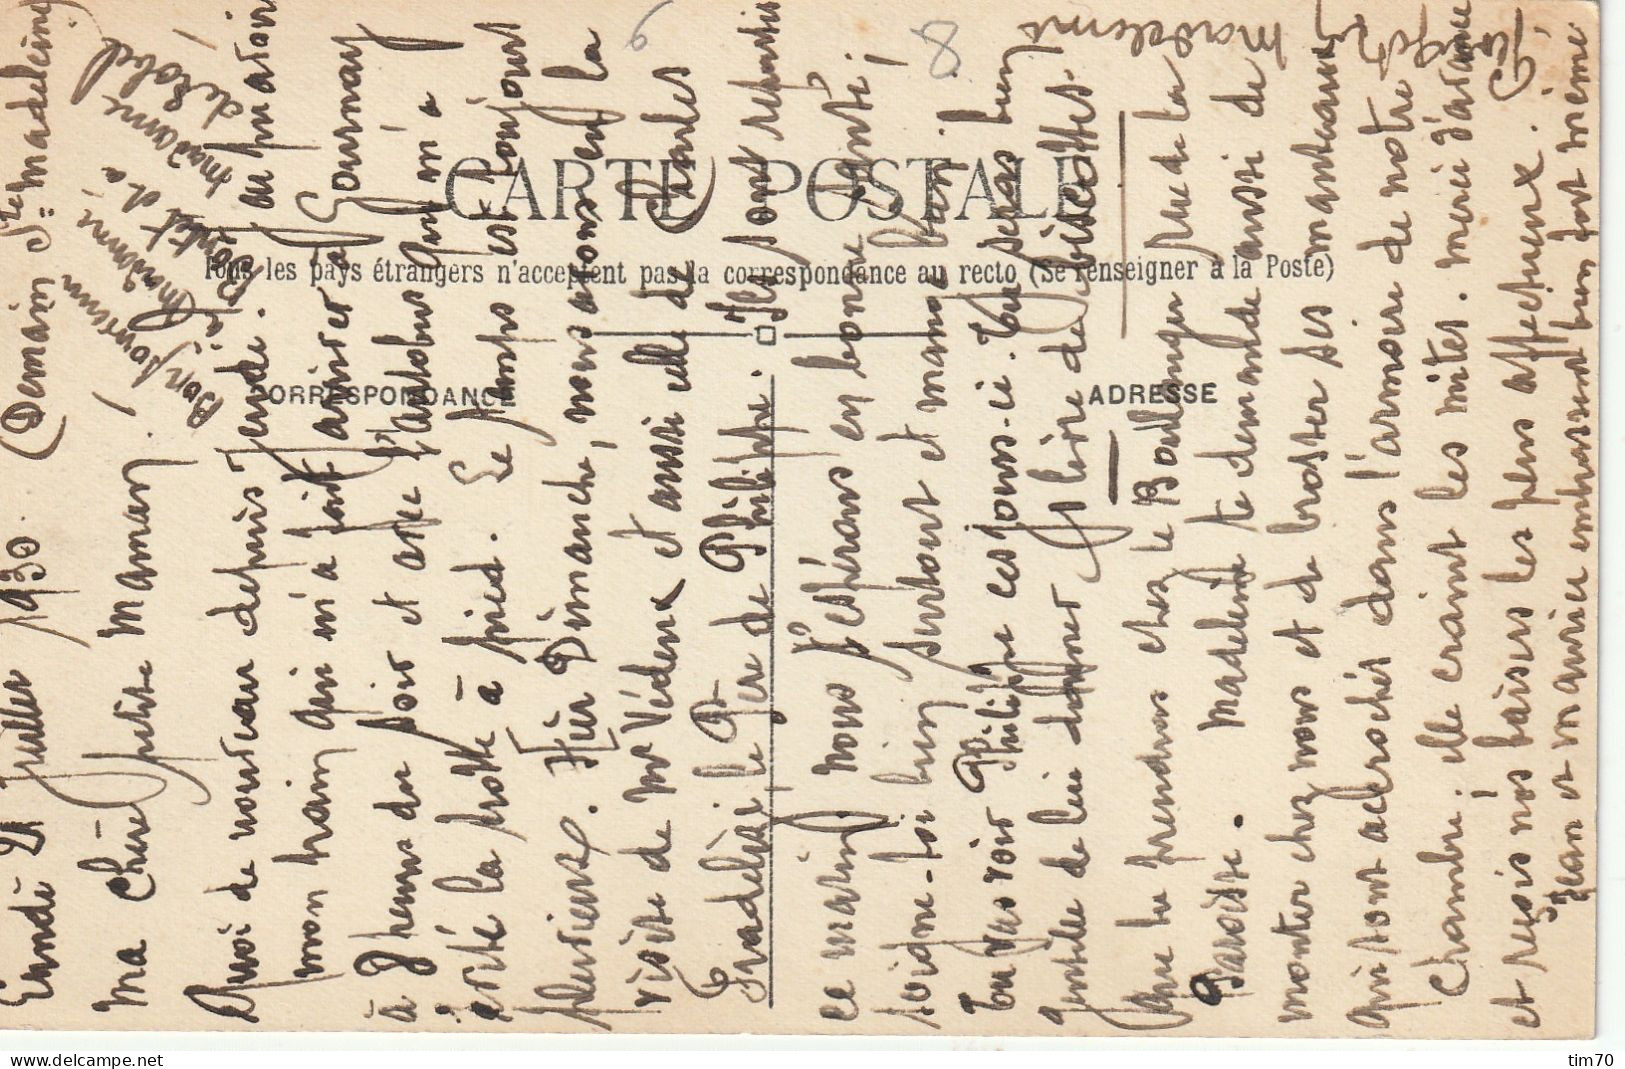 Lundi 21 Juillet 1930. (Demain Ste Madeleine)
Ma chère petite Maman !
Quoi de nouveau depuis Jeudi. Au
mon train qui m'a fait arriver à Gournay
à 8 heures du soir et avec l'autobus qui m'a
évité la trotte à pied. Le temps est toujours
pluvieux. Hier Dimanche, nous avons eu la
visite de Mr Védena et aussi celle de Charles
Pradelès, le Père de Philippe. Ils sont repartis
ce matin. Nous t'espérons en bonne santé,
soigne-toi bien surtout et mange bien.
Tu vas voir Philippe ces jours-ci. Tu seras bien
gentille de lui donner 1 livre de biscottes
que tu prendras chez le Boulanger rue de la
Paroisse. Madeleine te demande aussi de
monter chez nous et de brosser ses manteaux
qui sont accrochés dans l'armoire de notre
chambre, elle craint les mites. Merci d'avance
et reçois nos baisers les plus affectueux.
Jean et Maurice embrassent bien fort mémé
Bonjour
à Madame
Bontet et à
Madame
Madeleine
6
8
CARTE POSTALE
Tous les pays étrangers n'acceptent pas la correspondance au recto (Se renseigner à la Poste)
CORRESPONDANCE
ADRESSE
tim70